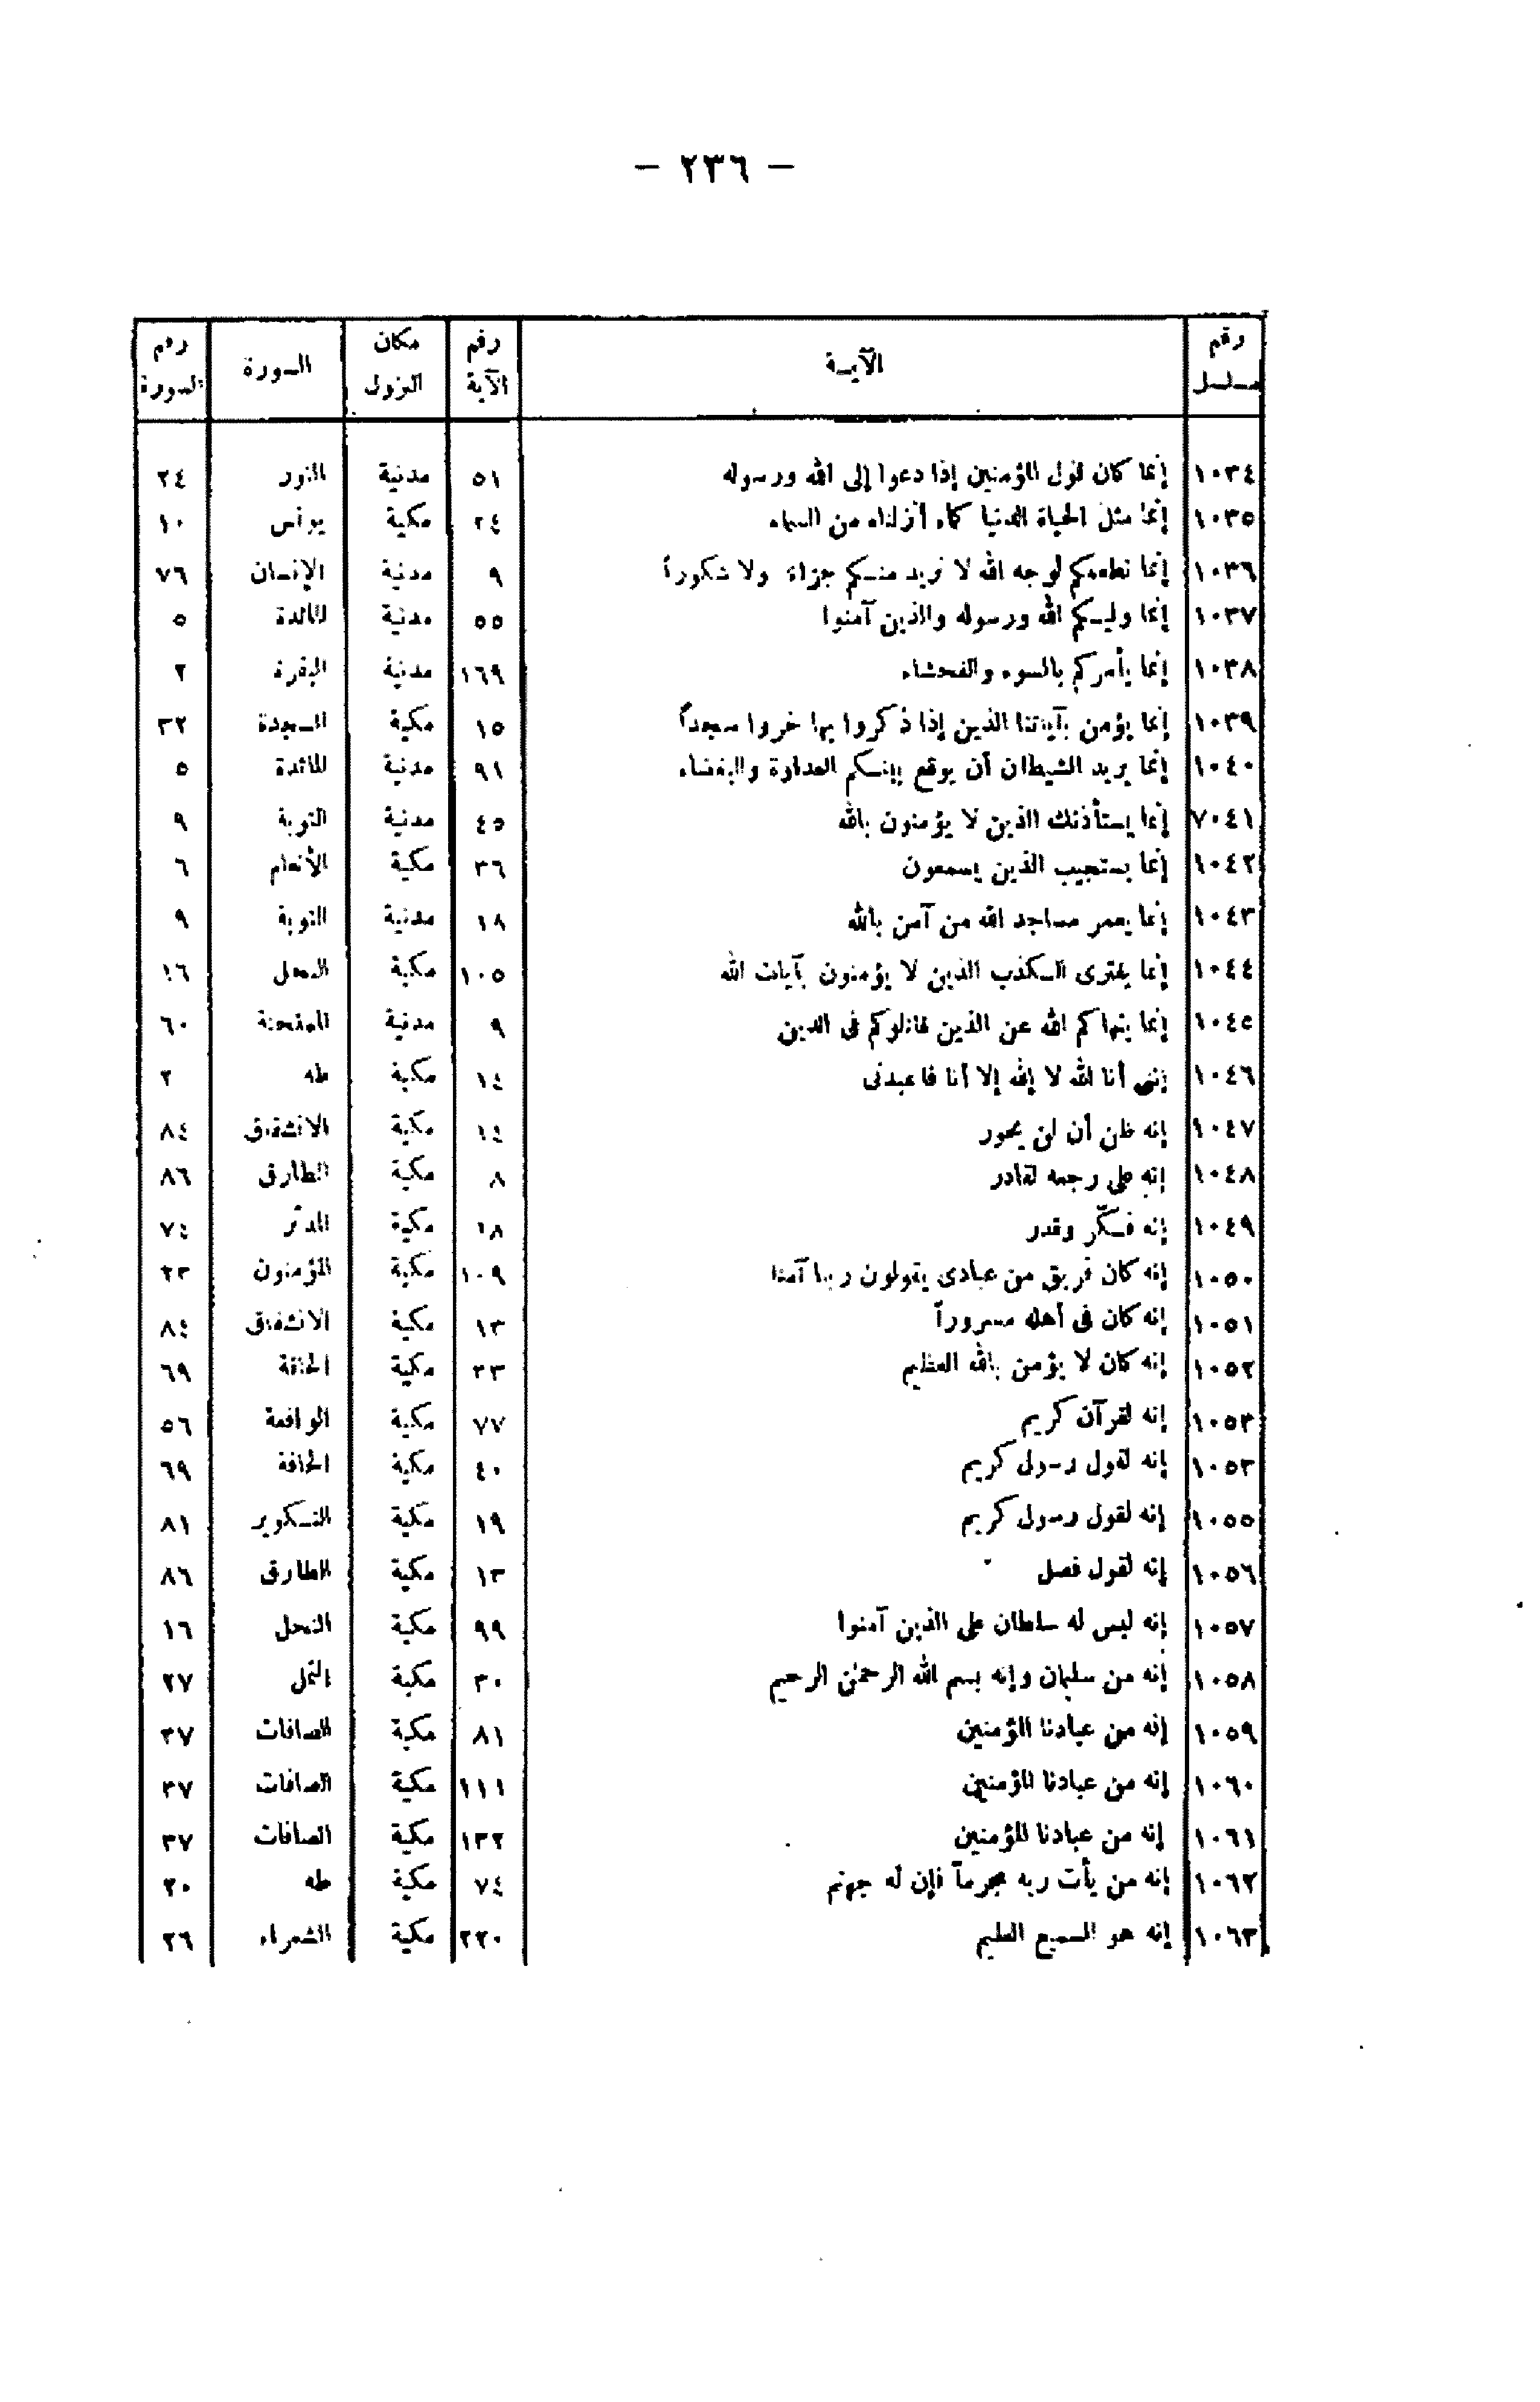 — ٢٣٦ —
رقم مسلسل | الآيـة | رقم الآية | مكان النزول | السورة | رقم السورة
١٠٣٤ | إنما كان قول المؤمنين إذا دعوا إلى الله ورسوله | ٥١ | مدنية | النور | ٢٤
١٠٣٥ | إنما مثل الحياة الدنيا كماء أنزلناه من السماء | ٢٤ | مكية | يونس | ١٠
١٠٣٦ | إنما نطعمكم لوجه الله لا نريد منكم جزاء ولا شكوراً | ٩ | مدنية | الإنسان | ٧٦
١٠٣٧ | إنما وليكم الله ورسوله والذين آمنوا | ٥٥ | مدنية | المائدة | ٥
١٠٣٨ | إنما يأمركم بالسوء والفحشاء | ١٦٩ | مدنية | البقرة | ٢
١٠٣٩ | إنما يؤمن بآياتنا الذين إذا ذكروا بها خروا سجداً | ١٥ | مكية | السجدة | ٣٢
١٠٤٠ | إنما يريد الشيطان أن يوقع بينكم العداوة والبغضاء | ٩١ | مدنية | المائدة | ٥
٧٠٤١ | إنما يستأذنك الذين لا يؤمنون بالله | ٤٥ | مدنية | التوبة | ٩
١٠٤٢ | إنما يستجيب الذين يسمعون | ٣٦ | مكية | الأنعام | ٦
١٠٤٣ | إنما يعمر مساجد الله من آمن بالله | ١٨ | مدنية | التوبة | ٩
١٠٤٤ | إنما يفترى الكذب الذين لا يؤمنون بآيات الله | ١٠٥ | مكية | النحل | ١٦
١٠٤٥ | إنما ينهاكم الله عن الذين قاتلوكم فى الدين | ٩ | مدنية | الممتحنة | ٦٠
١٠٤٦ | إننى أنا الله لا إله إلا أنا فاعبدنى | ١٤ | مكية | طه | ٢
١٠٤٧ | إنه ظن أن لن يحور | ١٤ | مكية | الانشقاق | ٨٤
١٠٤٨ | إنه على رجعه لقادر | ٨ | مكية | الطارق | ٨٦
١٠٤٩ | إنه فكّر وقدر | ١٨ | مكية | المدثر | ٧٤
١٠٥٠ | إنه كان فريق من عبادى يقولون ربنا آمنا | ١٠٩ | مكية | المؤمنون | ٢٣
١٠٥١ | إنه كان فى أهله مسروراً | ١٣ | مكية | الانشقاق | ٨٤
١٠٥٢ | إنه كان لا يؤمن بالله العظيم | ٣٣ | مكية | الحاقة | ٦٩
١٠٥٣ | إنه لقرآن كريم | ٧٧ | مكية | الواقعة | ٥٦
١٠٥٣ | إنه لقول رسول كريم | ٤٠ | مكية | الحاقة | ٦٩
١٠٥٥ | إنه لقول رسول كريم | ١٩ | مكية | التكوير | ٨١
١٠٥٦ | إنه لقول فصل | ١٣ | مكية | الطارق | ٨٦
١٠٥٧ | إنه ليس له سلطان على الذين آمنوا | ٩٩ | مكية | النحل | ١٦
١٠٥٨ | إنه من سليمان وإنه بسم الله الرحمن الرحيم | ٣٠ | مكية | النمل | ٢٧
١٠٥٩ | إنه من عبادنا المؤمنين | ٨١ | مكية | الصافات | ٣٧
١٠٦٠ | إنه من عبادنا المؤمنين | ١١١ | مكية | الصافات | ٣٧
١٠٦١ | إنه من عبادنا المؤمنين | ١٣٢ | مكية | الصافات | ٣٧
١٠٦٢ | إنه من يأت ربه مجرماً فإن له جهنم | ٧٤ | مكية | طه | ٢٠
١٠٦٣ | إنه هو السميع العليم | ٢٢٠ | مكية | الشعراء | ٢٦